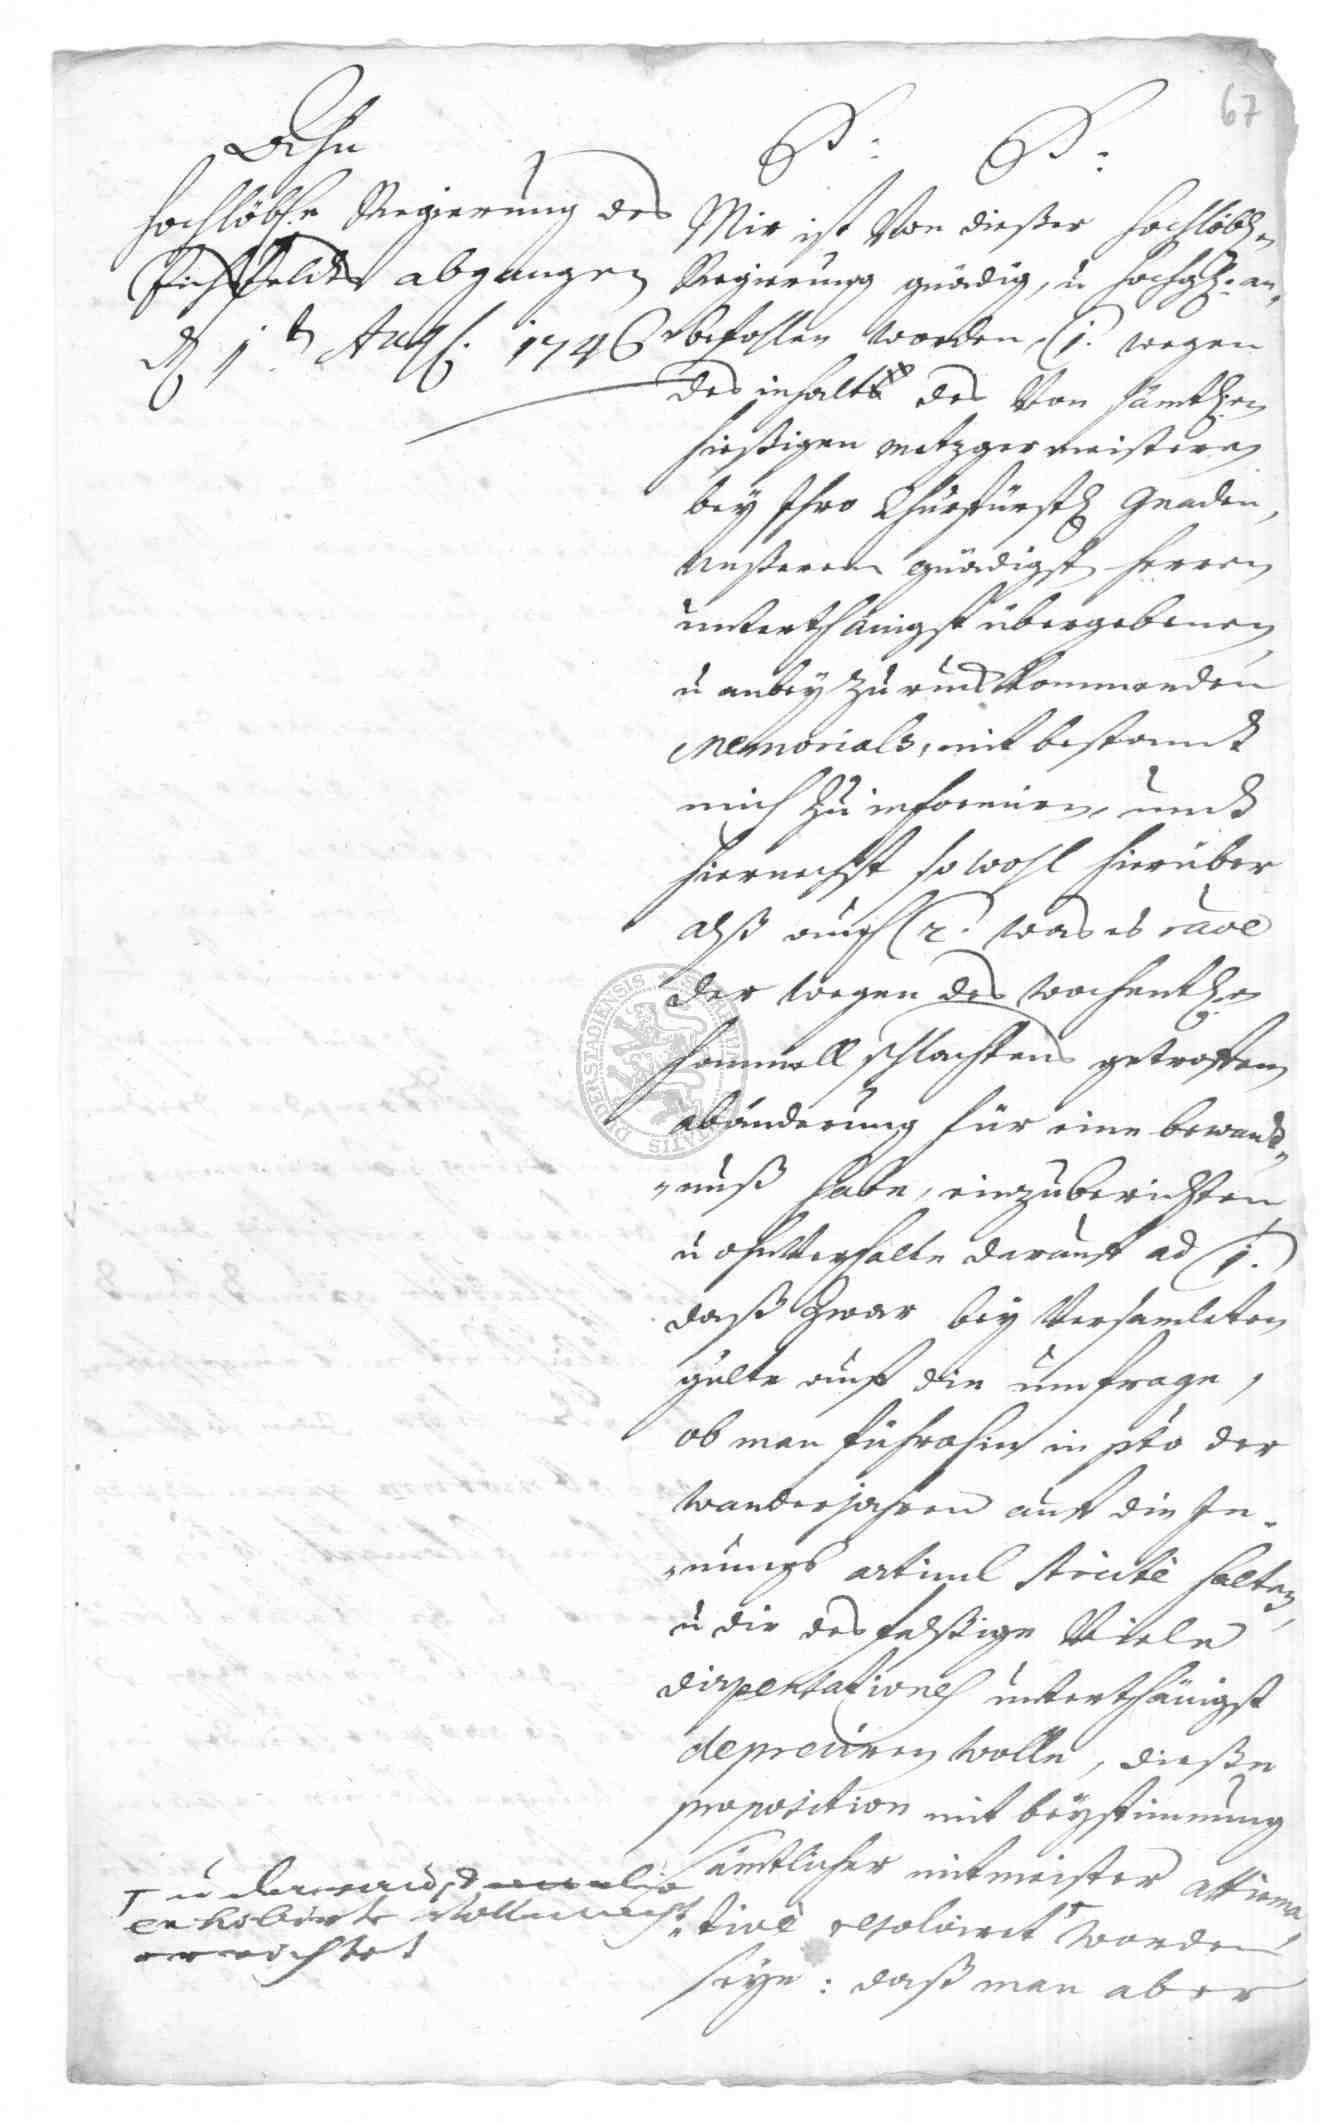 67
Ahn
hochlöbl. Regierung des
Eichsfeldts abgangen
d 1t Aug. 1746
P. P.
Mir ist Von dießer hochlöbl.
Regierung gnädig, u hochgl. an-
befohlen worden, (1. wegen
des inhalts des Von sämtl.en
hießigen metzger meisteren
bey Ihro Churfürstl Gnaden,
unßerem gnädigst herren
unterthänigst übergebenen
u anbey Zuruckkommenden
Memorials, mit bestandt
mich Zu informiren, undt
hiernechst so wohl hierüber
alß auch (2. was es
der wegen des wochentl.en
hammell schlachtens getroffenen
abänderung für eine bewandt-
-nuß habe, einzuberichten
u ohnVerhalte darauf ad (1.
daß Zwar bey Versamleten
gülte auf die umfrage,
ob man führohin in pto der
wanderjahren auf die In-
-nungs articul stricté halten,
u die desfalßige Viele
dispensationes unterthänigst
depreciren wolle, dieße
proposition mit beystimmung
sämtlicher mitmeister affirma-
-tivé resolviret worden
seye: daß man aber
u darauf
exhibirte Vollmacht
errichtet
DUDERSTADIENSIS